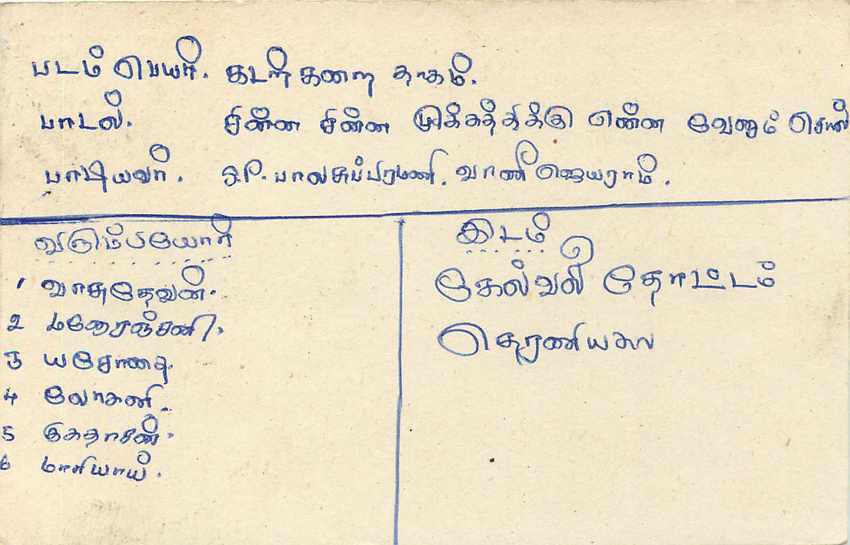 படம் பெயர். கடற்கரை தாகம்.
பாடல். சின்ன சின்ன முக்கத்திக்கு என்ன வேணும் சொல்
பாடியவர். S.P. பாலசுப்பிரமணி. வாணி ஜெயராம்.
விரும்பியோர்
1 வாசுதேவன்.
2 மனோரஞ்சனி.
3 யசோதை.
4 லோகனி.
5 குகதாசன்.
6 மாரியாய்.
இடம்
கேல்வலி தோட்டம்
தெரணியகல